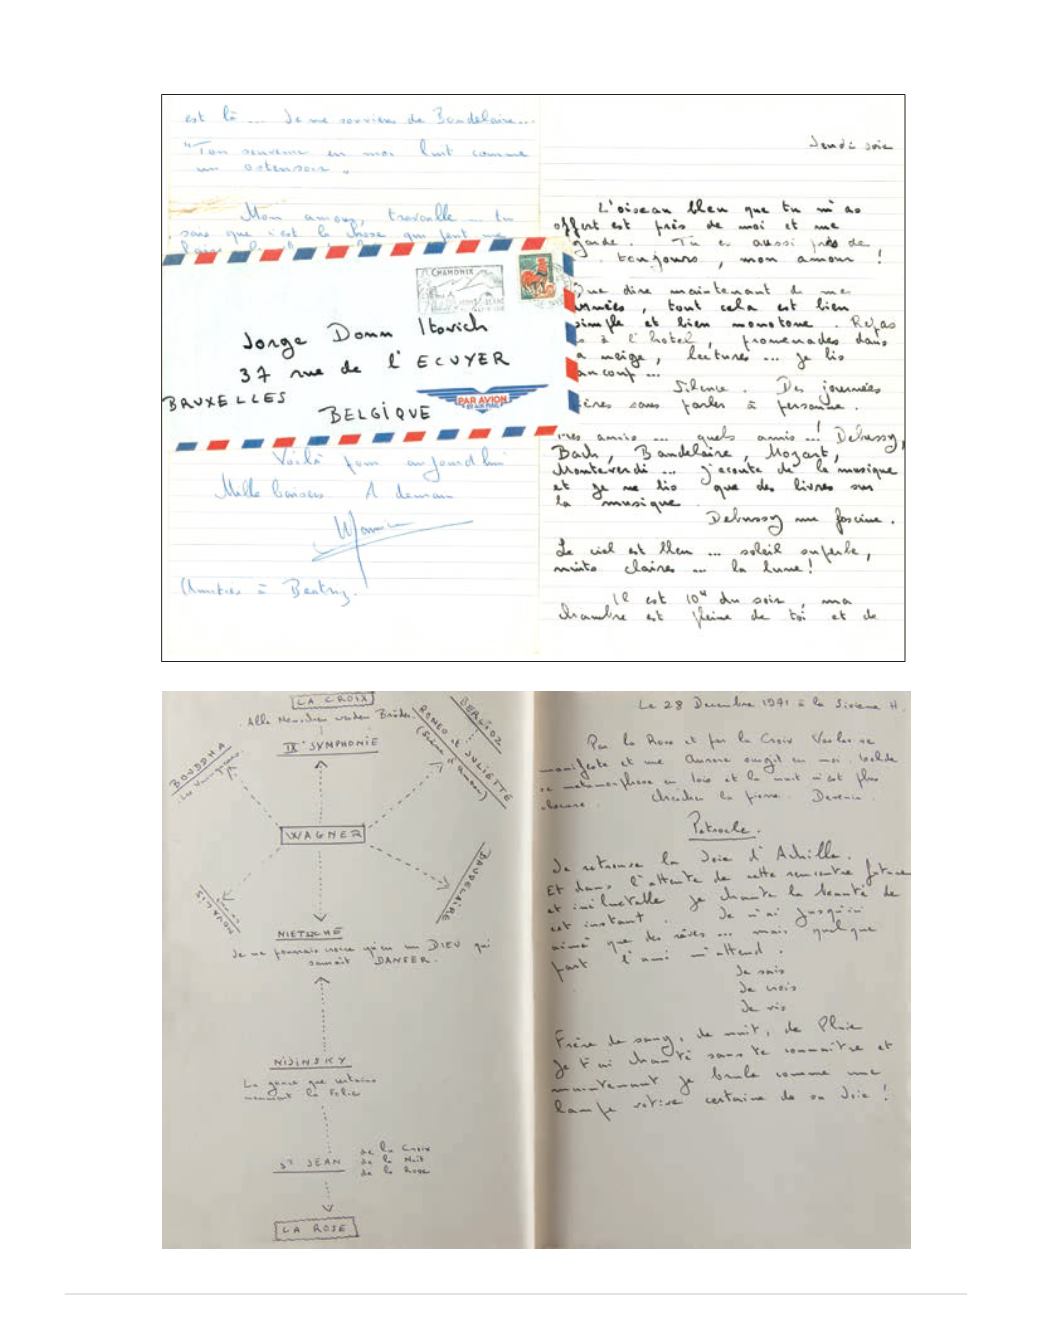 est là ... Je me souviens de Baudelaire...
"Ton souvenir en moi luit comme
un ostensoir"
Mon amour, travaille ... tu
sais que c'est la chose qui peut me
CHAMONIX
MONT-BLANC
Jorge Donn Itovich
37 rue de l'ECUYER
BRUXELLES
BELGIQUE
PAR AVION
Voilà pour aujourd'hui
Mille baisers A demain
Maurice
Amitiés à Beatriz.
Jeudi soir
L'oiseau bleu que tu m'as
offert est près de moi et me
garde. Tu es aussi près de
toujours, mon amour !
Que dire maintenant de me
journées, tout cela est bien
simple et bien monotone. Repas
à l'hotel, promenades dans
la neige, lectures ... je lis
beaucoup ...
Silence. Des journées
entières sans parler à personne.
Mes amis ... quels amis ...! Debussy,
Bach, Baudelaire, Mozart,
Monteverdi ... j'écoute de la musique
et je ne lis que des livres sur
la musique
Debussy me fascine.
Le ciel est bleu ... soleil superbe,
nuits claires ... la lune !
Il est 10H du soir, ma
chambre est pleine de toi et de
LA CROIX
Alle Menschen werden Brüder.
IXe SYMPHONIE
BERLIOZ
ROMEO et JULIETTE
(Scène d'Amour)
BOUDDHA
WAGNER
BAUDELAIRE
NOVALIS
NIETSCHE
Je ne pourrais croire qu'en un DIEU qui
saurait DANSER.
NIJINSKY
La grace que certains
nomment la Folie
St JEAN
de la Croix
de la Nuit
de la Rose
LA ROSE
Le 28 Decembre 1971 à la Sixieme H.
Par la Rose et par la Croix
manifeste et une Aurore surgit en moi.
se metamorphose en lois et la nuit n'est plus
obscure. Devenir.
Patrocle.
Je retrouve la Joie d'Achille.
Et dans l'attente de cette rencontre future
et inéluctable je chante la beauté de
cet instant. Je n'ai jusqu'ici
aimé que des rêves ... mais quelque
part l'ami m'attend.
Je sais
Je crois
Je vis
Frère de sang, de nuit, de Pluie
Je t'ai chanté sans te connaitre et
maintenant je brule comme une
lampe votive certaine de sa Joie !